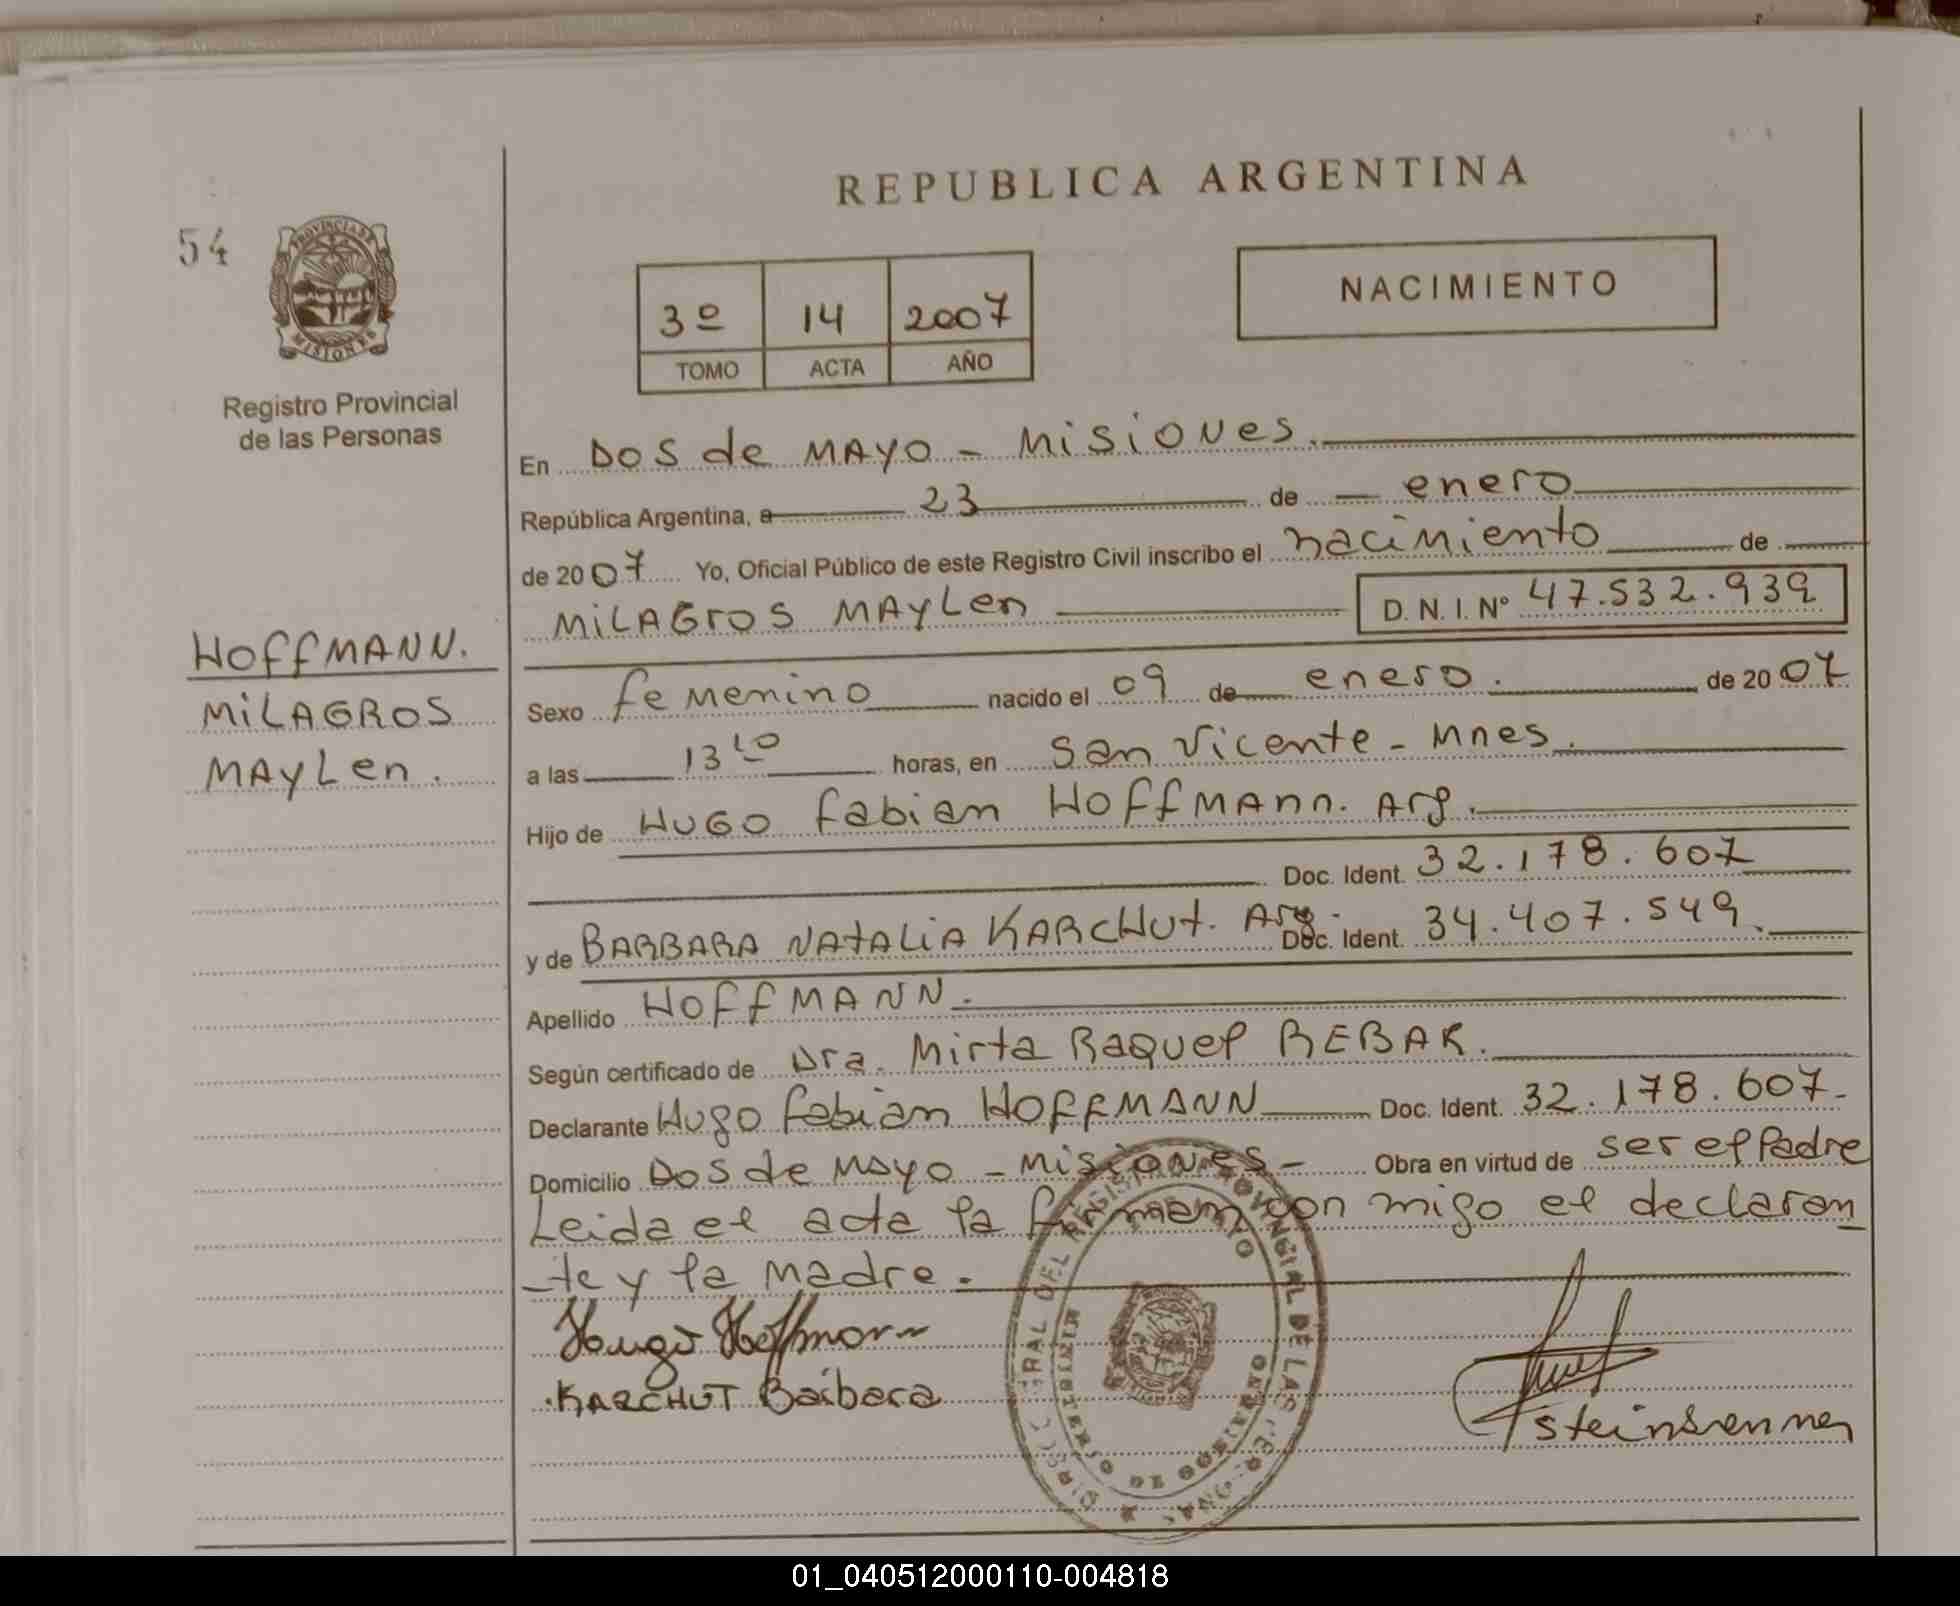 REPUBLICA ARGENTINA
54
PROVINCIA DE
MISIONES
Registro Provincial
de las Personas
3º 14 2007
TOMO ACTA AÑO
NACIMIENTO
En Dos de MAYO - Misiones.
República Argentina, a 23 de enero
de 2007 Yo, Oficial Público de este Registro Civil inscribo el nacimiento de
MiLAGros MAYLen D. N. I. Nº 47.532.939
HOFFMANN.
MiLAGROS
MAYLen.
Sexo femenino nacido el 09 de enero. de 2007
a las 13 10 horas, en San Vicente - Mnes.
Hijo de HUGO Fabian HOFFMAnn. Arg.
Doc. Ident. 32.178.607
y de BARBARA NATALIA KARCHUt. Arg. Doc. Ident. 34.407.549.
Apellido HOFFMANN.
Según certificado de Dra. Mirta Raquel REBAK.
Declarante Hugo Fabian HOFFMANN Doc. Ident. 32.178.607-
Domicilio Dos de Mayo - Misiones - Obra en virtud de ser el Padre
Leida el acta la firman con migo el declaran
-te y la madre.
Hugo Hoffmann
KARCHUT Barbara
01_040512000110-004818